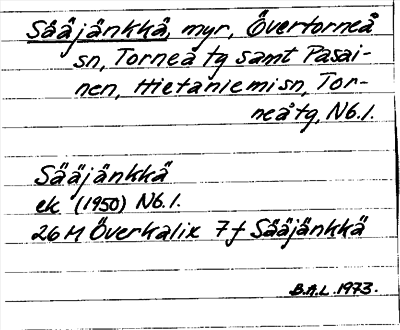 Sääjänkkä, myr, Övertorneå
sn, Torneå tg samt Pasai-
nen, Hietaniemi sn, Tor-
neå tg, Nb.l.
Sääjänkkä
ek (1950) Nb.l.
26 M Överkalix 7f Sääjänkkä
B.A.L. 1973.